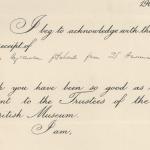 19
I beg to acknowledge with the
receipt of
from
h you have been so good as
nt to the Trustees of the
ritish Museum.
I am,